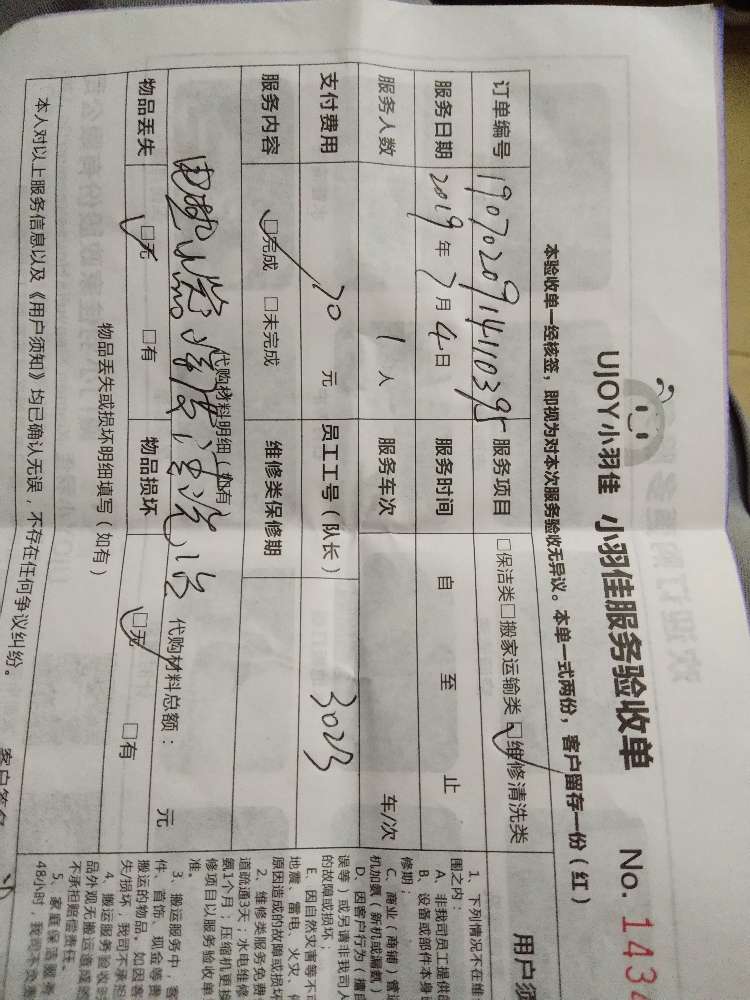 UJOY小羽佳 小羽佳服务验收单 No. 1434
本验收单一经核签，即视为对本次服务验收无异议。本单一式两份，客户留存一份（红）
订单编号 1907020914110395 服务项目 □保洁类□搬家运输类□维修清洗类
服务日期 2019年7月4日 服务时间 自 至 止
服务人数 1人 服务车次 车/次
支付费用 70 元 员工工号（队长） 3023
服务内容 □完成 □未完成 维修类保修期
代购材料明细（如有） 代购材料总额： 元
物品丢失 □无 □有 物品损坏 □无 □有
物品丢失或损坏明细填写（如有）
本人对以上服务信息以及《用户须知》均已确认无误，不存在任何争议纠纷。
客户签名
用户须
1、下列情况不在维
围之内：
A、非我司员工提供的
B、设备或部件本身
修期；
C、商业（商铺）管道
机加氨（新机或漏氨）
D、因客户行为（擅自
误等）或另请非我司人
的故障或损坏；
E、因自然灾害等不可
地震、雷电、火灾、
原因造成的故障或损坏
2、维修类服务免费
道疏通3天；水电维修
氨1个月；压缩机更换
修项目以服务验收单
准。
3、搬运服务中，客
件、首饰、现金等贵
搬运的物品。如因客
失/损坏，我司不承担
4、搬运服务验收
品外观无搬运造成的
不承担赔偿责任。
5、家庭保洁服务
48小时，我司不免费